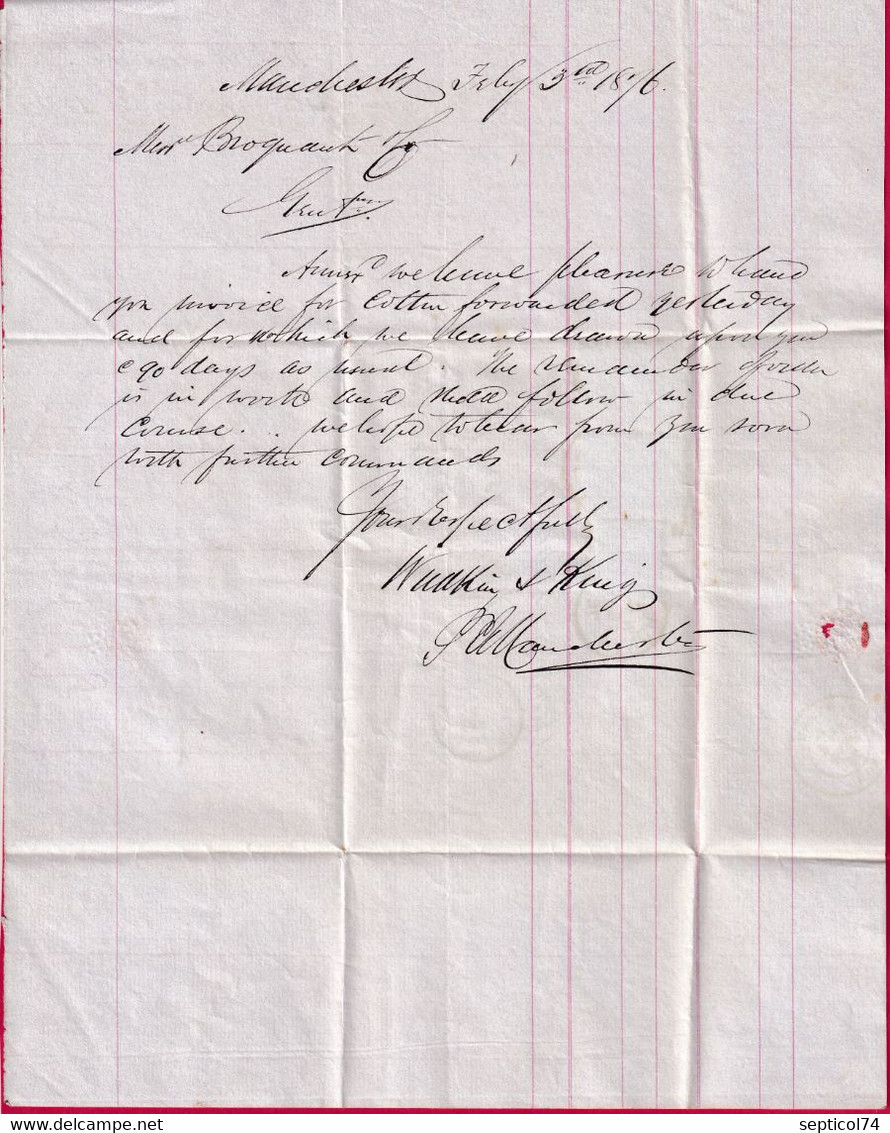 Manchester Feby 3rd 1876.
Messrs Broquant & Co
Gentmn
Annexd we have pleasure to hand
you invoice for Cotton forwarded yesterday
and for which we have drawn upon you
@ 90 days as usual. The remainder of order
is in work and shall follow in due
course. .. we hope to hear from you soon
with further commands
Yours respectfully
Wadkin & King
Manchester
septicol74